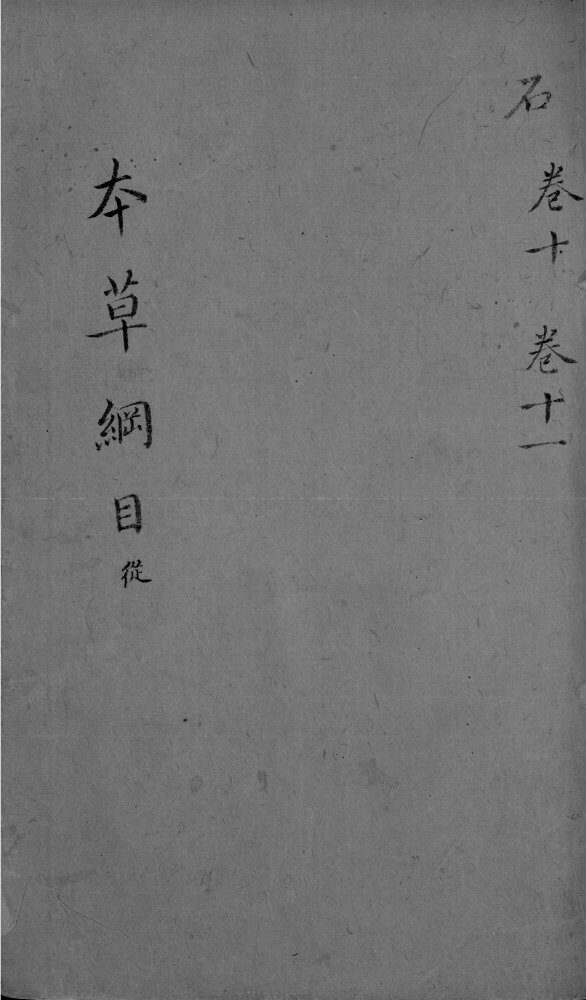 石
卷十　卷十一
本草綱目 從